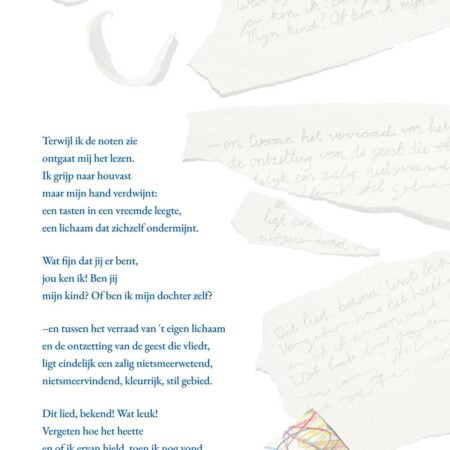 jou ken ik!
Mijn kind? Of ben ik mijn
Terwijl ik de noten zie
ontgaat mij het lezen.
Ik grijp naar houvast
maar mijn hand verdwijnt:
een tasten in een vreemde leegte,
een lichaam dat zichzelf ondermijnt.
Wat fijn dat jij er bent,
jou ken ik! Ben jij
mijn kind? Of ben ik mijn dochter zelf?
–en tussen het verraad van 't eigen lichaam
en de ontzetting van de geest die vliedt,
ligt eindelijk een zalig nietsmeerwetend,
nietsmeervindend, kleurrijk, stil gebied.
Dit lied, bekend! Wat leuk!
Vergeten hoe het heette
en of ik ervan hield, toen ik nog vond
–en tussen het verraad van het
de ontzetting van de geest die
een zalig nietsmeer
stil
en
ligt
Dit lied, bekend! Wat leuk
Vergeten hoe het heette